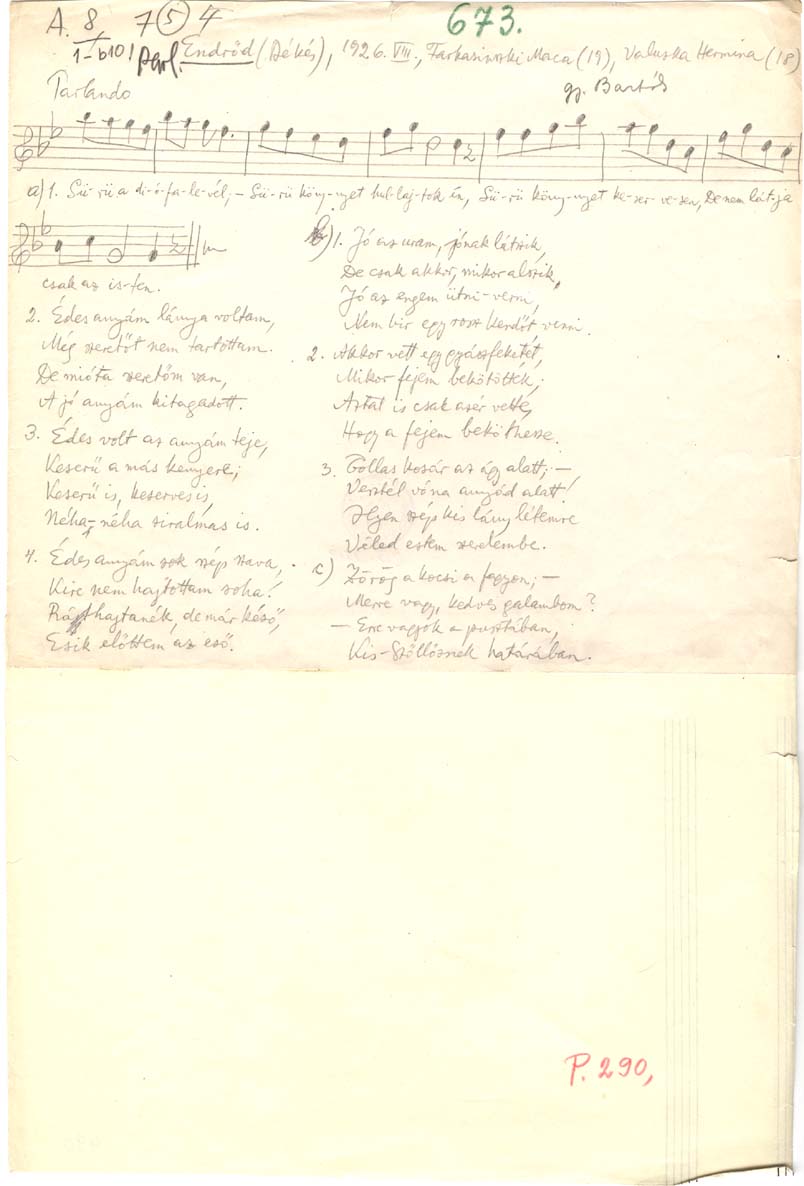 A. 8, 7 5 4
673.
1-b10! Parl. Endrőd (Békés), 1926. VIII., Farkasinszki Maca (19), Valuska Hermina (18)
Parlando
gy. Bartók
a) 1. Sű-rű a di-ó-fa-le-vél, – Sű-rű köny-nyet hul-laj-tok én, Sű-rű köny-nyet ke-ser-ve-sen, De nem lát-ja
csak az is-ten.
2. Édes anyám lánya voltam,
Még szeretőt nem tartottam.
De mióta szeretőm van,
A jó anyám kitagadott.
3. Édes volt az anyám teje,
Keserű a más kenyere;
Keserű is, keserves is,
Néha-néha siralmas is.
4. Édes anyám sok szép szava,
Kire nem hajtottam soha!
Ráhajtanék, de már késő,
Esik előttem az eső.
b) 1. Jó az uram, jónak látszik,
De csak akkor, mikor alszik,
Jó az engem ütni-verni,
Nem bir egy rossz kendőt venni.
2. Akkor vett egy gyászfeketét,
Mikor fejem bekötötték;
Aztat is csak azér vette,
Hogy a fejem bekösthesse.
3. Tollas kosár az ágy alatt; –
Vesztél vóna anyád alatt!
Ilyen szép kis lány létemre
Véled estem szerelembe.
c) Zörög a kocsi a fagyon; –
Merre vagy, kedves galambom?
– Erre vagyok a pusztában,
Kis-Szőllősnek határában.
P. 290,